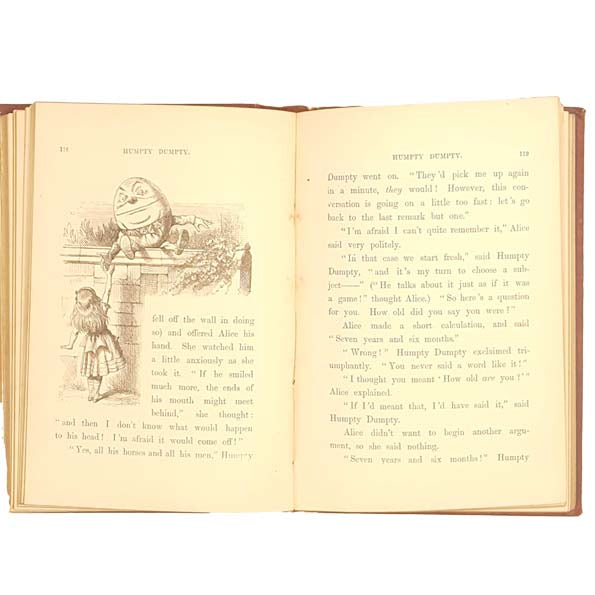 118
HUMPTY DUMPTY.
fell off the wall in doing
so) and offered Alice his
hand. She watched him
a little anxiously as she
took it. "If he smiled
much more, the ends of
his mouth might meet
behind," she thought:
"and then I don't know what would happen
to his head! I'm afraid it would come off!"
"Yes, all his horses and all his men," Humpty
HUMPTY DUMPTY.
119
Dumpty went on. "They'd pick me up again
in a minute, they would! However, this con-
versation is going on a little too fast: let's go
back to the last remark but one."
"I'm afraid I can't quite remember it," Alice
said very politely.
"In that case we start fresh," said Humpty
Dumpty, "and it's my turn to choose a sub-
ject——" ("He talks about it just as if it was
a game!" thought Alice.) "So here's a question
for you. How old did you say you were?"
Alice made a short calculation, and said
"Seven years and six months."
"Wrong!" Humpty Dumpty exclaimed tri-
umphantly. "You never said a word like it!"
"I thought you meant 'How old are you?'"
Alice explained.
"If I'd meant that, I'd have said it," said
Humpty Dumpty.
Alice didn't want to begin another argu-
ment, so she said nothing.
"Seven years and six months!" Humpty